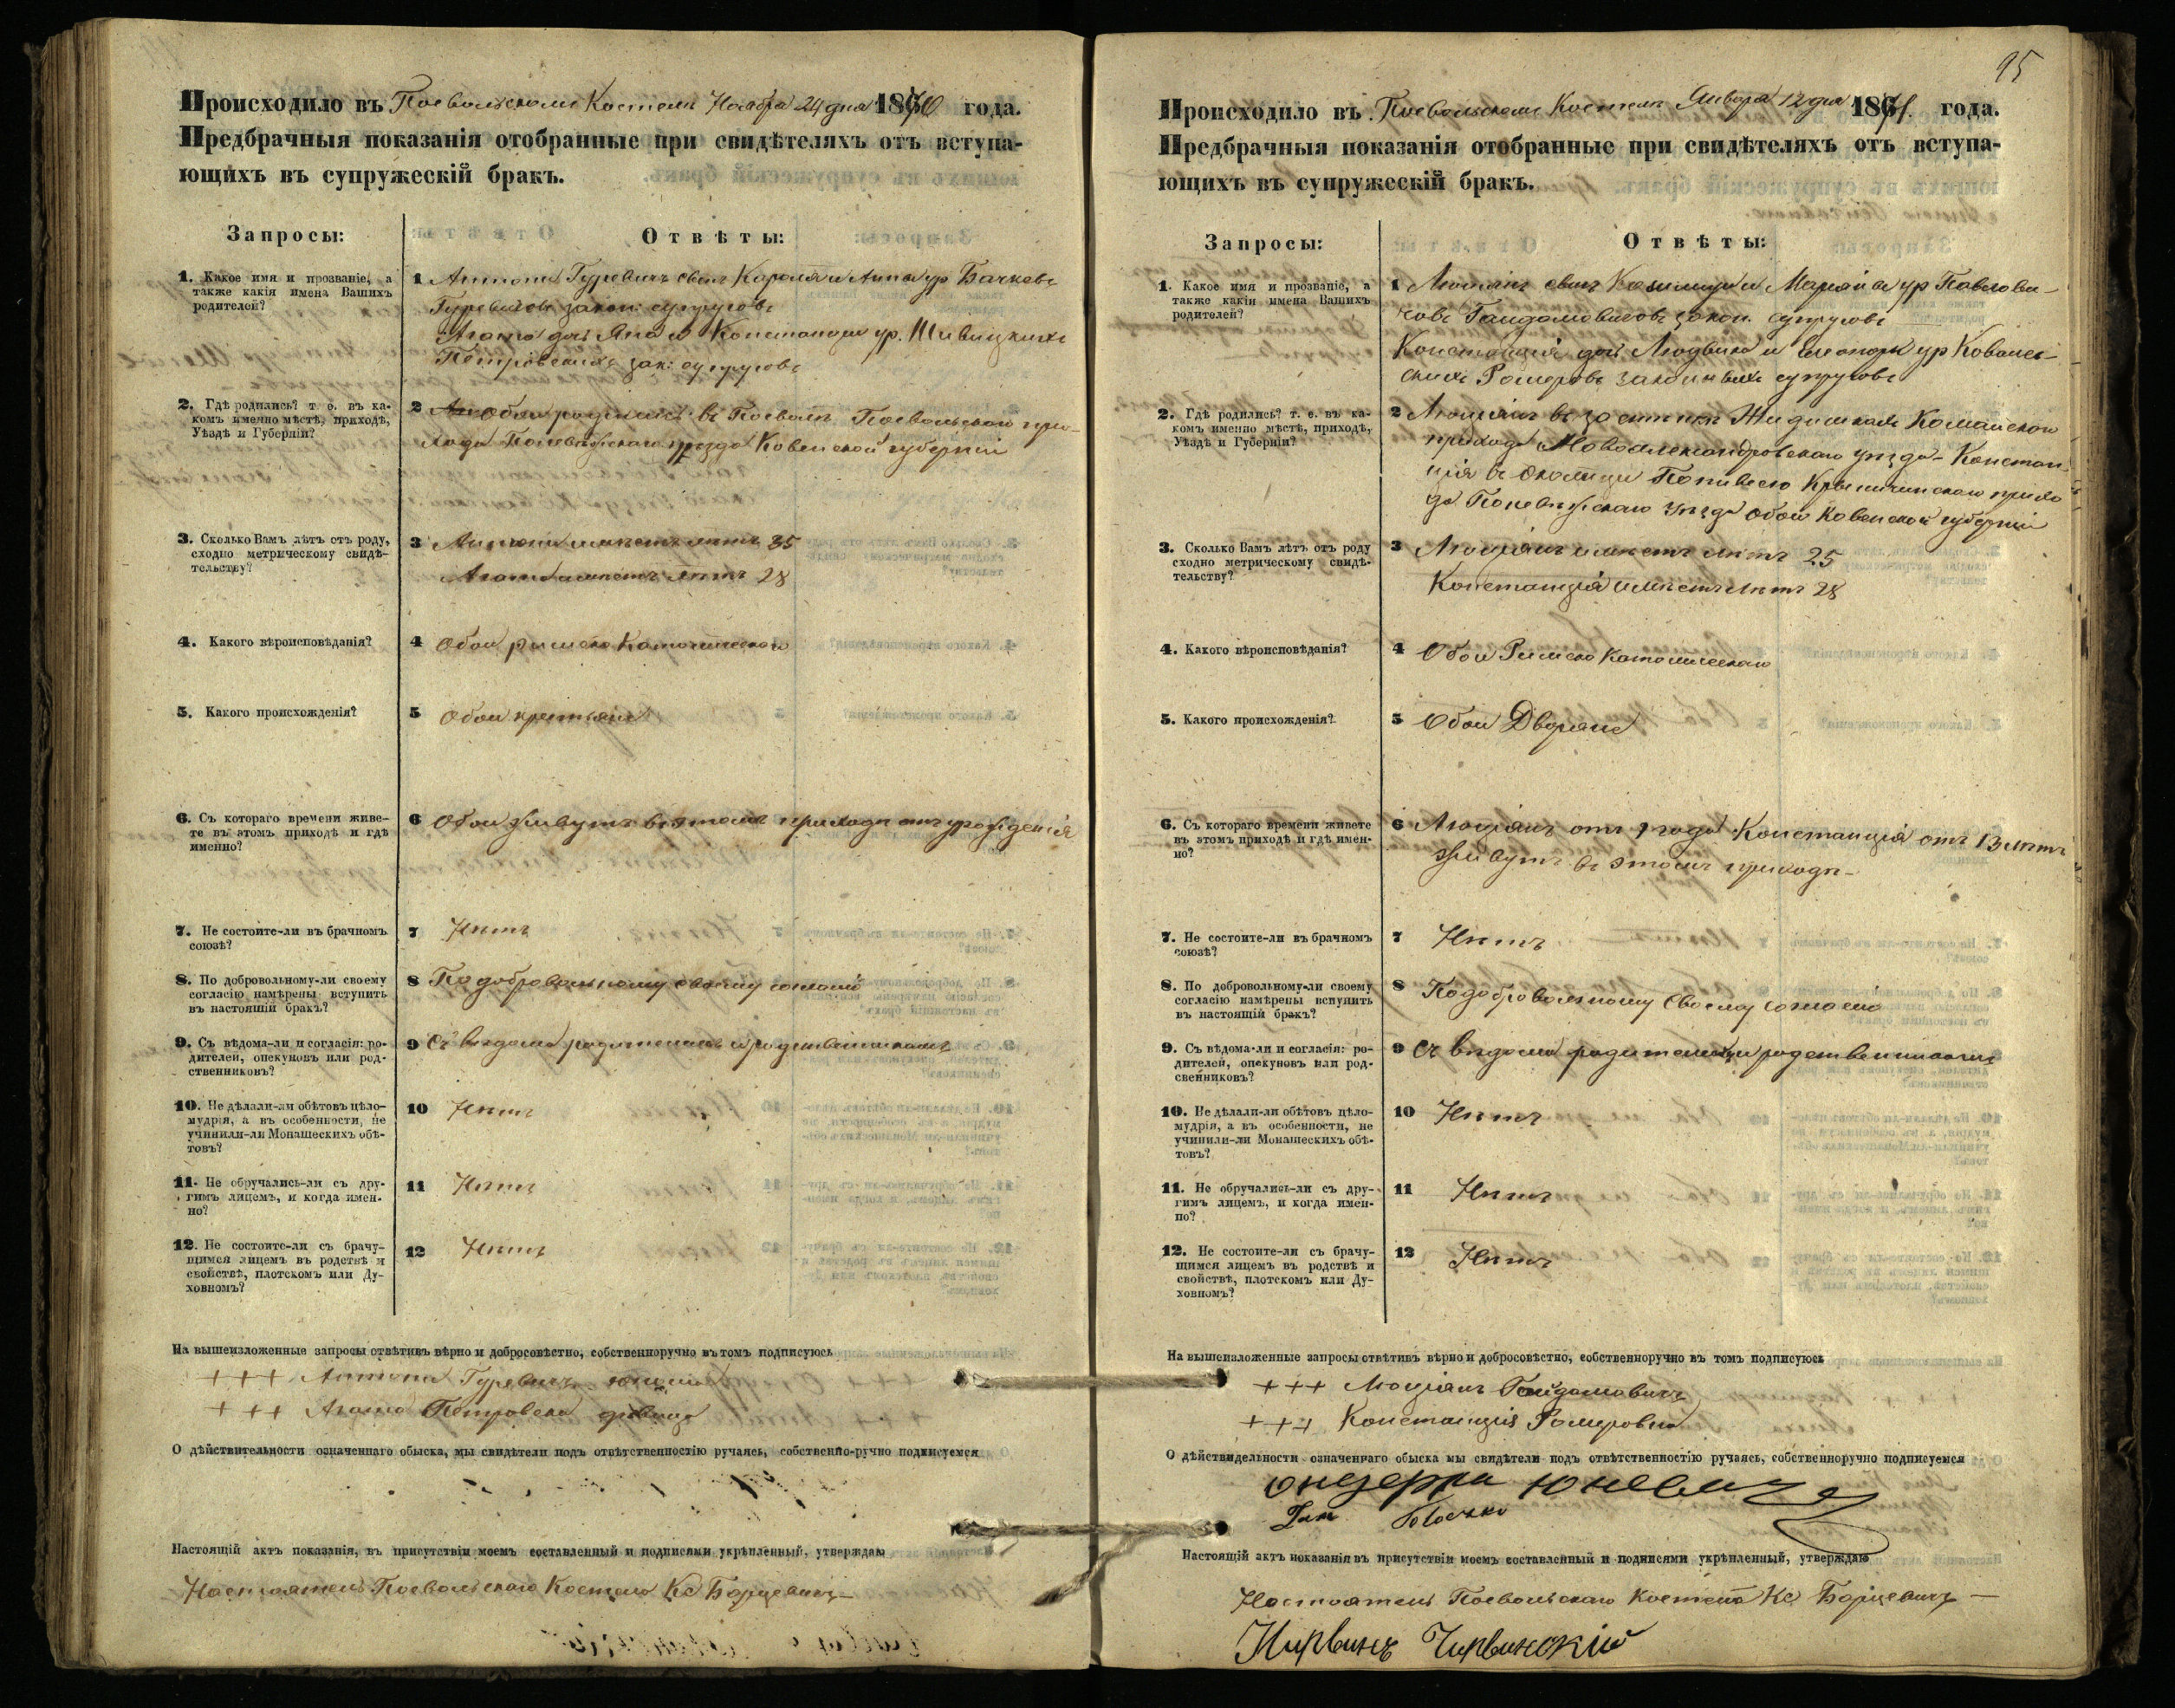 Происходило въ Поевольскомъ Костелѣ Ноября 24 дня 1870 года.
Предбрачныя показанія отобранные при свидѣтеляхъ отъ вступа-
ющихъ въ супружескій бракъ.
Запросы:
Отвѣты:
1. Какое имя и прозваніе, а
также какія имена Вашихъ
родителей?
1 Антони Гуревичъ сынъ Кароля и Анны ур Бачковъ
Гуревичовъ закон: супруговъ
Агата дочь Яна и Констанціи ур. Шивицкихъ
Петровскихъ зак: супруговъ
2. Гдѣ родились? т. е. въ ка-
комъ именно мѣстѣ, приходѣ,
Уѣздѣ и Губерніи?
2 Обои родились въ Поеволѣ Поевольскаго при-
хода Поневѣжскаго уѣзда Ковенской губерніи
3. Сколько Вамъ лѣтъ отъ роду,
сходно метрическому свидѣ-
тельству?
3 Антони имѣетъ лѣтъ 35
Агата имѣетъ лѣтъ 28
4. Какого вѣроисповѣданія?
4 Обои римско Католическаго
5. Какого происхожденія?
5 Обои крестьяне
6. Съ котораго времени живе-
те въ этомъ приходѣ и гдѣ
именно?
6 Обои живутъ въ этомъ приходѣ отъ урожденія
7. Не состоите-ли въ брачномъ
союзѣ?
7 Нѣтъ
8. По добровольному-ли своему
согласію намѣрены вступить
въ настоящій бракъ?
8 По добровольному своему согласію
9. Съ вѣдома-ли и согласія: ро-
дителей, опекуновъ или род-
ственниковъ?
9 Съ вѣдома родителей и родственниковъ
10. Не дѣлали-ли обѣтовъ цѣло-
мудрія, а въ особенности, не
учинили-ли Монашескихъ обѣ-
товъ?
10 Нѣтъ
11. Не обручались-ли съ дру-
гимъ лицемъ, и когда имен-
но?
11 Нѣтъ
12. Не состоите-ли съ брачу-
щимся лицемъ въ родствѣ и
свойствѣ, плотскомъ или Ду-
ховномъ?
12 Нѣтъ
На вышеизложенные запросы отвѣтивъ вѣрно и добросовѣстно, собственноручно въ томъ подписуюсь
+++ Антони Гуревичъ юноша
+++ Агата Петровска дѣвица
О дѣйствительности означеннаго обыска, мы свидѣтели подъ отвѣтственностію ручаясь, собственно-ручно подписуемся
Настоящій актъ показанія, въ присутствіи моемъ составленный и подписями укрѣпленный, утверждаю
Настоятель Поевольскаго Костела Кс Борцевичъ
95
Происходило въ Поевольскомъ Костелѣ Января 12 дня 1871 года.
Предбрачныя показанія отобранные при свидѣтеляхъ отъ вступа-
ющихъ въ супружескій бракъ.
Запросы:
Отвѣты:
1. Какое имя и прозваніе, а
также какія имена Вашихъ
родителей?
1 Люціянъ сынъ Казимира и Маріаны ур Павлови-
човъ Гайдамовичовъ закон. супруговъ
Констанція дочь Людвика и Елеоноры ур Ковалев-
скихъ Ромеровъ законныхъ супруговъ
2. Гдѣ родились? т. е. въ ка-
комъ именно мѣстѣ, приходѣ,
Уѣздѣ и Губерніи?
2 Люціянъ въ застѣнкѣ Комайскаго
прихода Новоалександровскаго уѣзда - Констан-
ція въ околицы Криничинскаго прихо
да Поневѣжскаго уѣзда обои Ковенской губерніи
3. Сколько Вамъ лѣтъ отъ роду
сходно метрическому свидѣ-
тельству?
3 Люціянъ имѣетъ лѣтъ 25
Констанція имѣетъ лѣтъ 28
4. Какого вѣроисповѣданія?
4 Обои Римско Католическаго
5. Какого происхожденія?
5 Обои Дворяне
6. Съ котораго времени живете
въ этомъ приходѣ и гдѣ имен-
но?
6 Люціянъ отъ 1 года Констанція отъ 13 лѣтъ
живутъ въ этомъ приходѣ-
7. Не состоите-ли въ брачномъ
союзѣ?
7 Нѣтъ
8. По добровольному-ли своему
согласію намѣрены вспупить
въ настоящій бракъ?
8 По добровольному своему согласію
9. Съ вѣдома-ли и согласія: ро-
дителей, опекуновъ или род-
свенниковъ?
9 Съ вѣдома родителей и родственниковъ
10. Не дѣлали-ли обѣтовъ цѣло-
мудрія, а въ особенности, не
учинили-ли Монашескихъ обѣ-
товъ?
10 Нѣтъ
11. Не обручались-ли съ дру-
гимъ лицемъ, и когда имен-
но?
11 Нѣтъ
12. Не состоите-ли съ брачу-
щимся лицемъ въ родствѣ и
свойствѣ, плотскомъ или Ду-
ховномъ?
12 Нѣтъ
На вышеизложенные запросы отвѣтивъ вѣрно и добросовѣстно, собственноручно въ томъ подписуюсь
+++ Люціянъ Гайдамовичъ
+++ Констанція Ромеровна
О дѣйствидельности означеннаго обыска мы свидѣтели подъ отвѣтственностію ручаясь, собственноручно подписуемся
Юневичъ
Настоящій актъ показанія въ присутствіи моемъ составленный и подписями укрѣпленный, утверждаю
Настоятель Поевольскаго Костела Кс Борцевичъ -
Чирвинскій